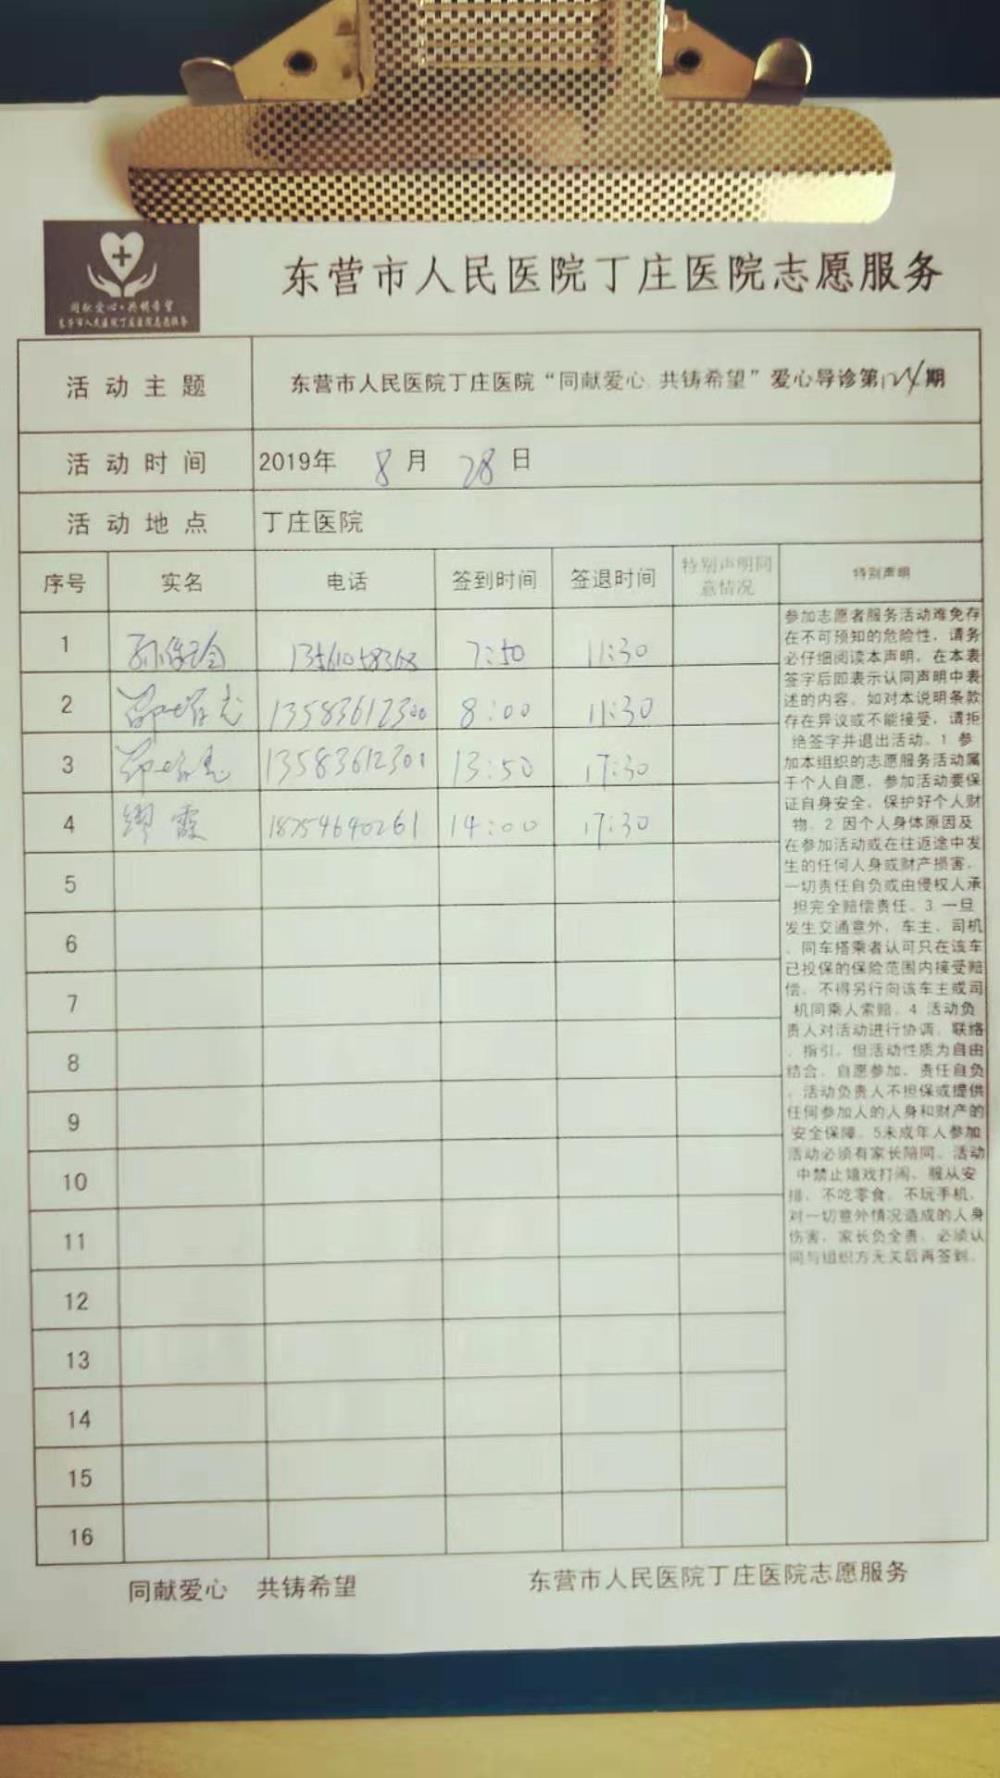 同献爱心·共铸希望
东营市人民医院丁庄医院志愿服务
东营市人民医院丁庄医院志愿服务
活动主题 东营市人民医院丁庄医院“同献爱心 共铸希望”爱心导诊第124期
活动时间 2019年 8月 28日
活动地点 丁庄医院
序号 实名 电话 签到时间 签退时间 特别声明同意情况 特别声明
1 13561058368 7:50 11:30
2 13583612300 8:00 11:30
3 13583612301 13:50 17:30
4 缪霞 18754640261 14:00 17:30
5
6
7
8
9
10
11
12
13
14
15
16
参加志愿者服务活动难免存
在不可预知的危险性，请务
必仔细阅读本声明，在本表
签字后即表示认同声明中表
述的内容。如对本说明条款
存在异议或不能接受，请拒
绝签字并退出活动。1 参
加本组织的志愿服务活动属
于个人自愿，参加活动要保
证自身安全，保护好个人财
物。2 因个人身体原因及
在参加活动或在往返途中发
生的任何人身或财产损害，
一切责任自负或由侵权人承
担完全赔偿责任。3 一旦
发生交通意外，车主、司机
、同车搭乘者认可只在该车
已投保的保险范围内接受赔
偿，不得另行向该车主或司
机同乘人索赔。4 活动负
责人对活动进行协调、联络
、指引，但活动性质为自由
结合、自愿参加、责任自负
，活动负责人不担保或提供
任何参加人的人身和财产的
安全保障。5未成年人参加
活动必须有家长陪同，活动
中禁止嬉戏打闹，服从安
排，不吃零食，不玩手机，
对一切意外情况造成的人身
伤害，家长负全责，必须认
同与组织方无关后再签到。
同献爱心 共铸希望 东营市人民医院丁庄医院志愿服务